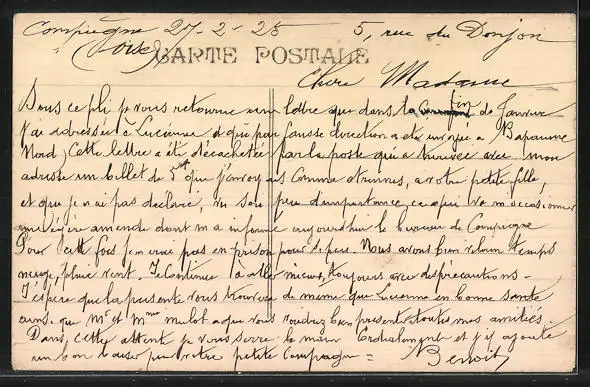 Compiègne 27-2-25 5, rue du Donjon
(Oise) CARTE POSTALE
Chère Madame
Sous ce pli je vous retourne une lettre que dans la fin de Janvier
j'ai adressée à Lucienne et qui par fausse direction a été envoyé à Bapaume
Nord, cette lettre a été décachetée par la poste qui a trouvée avec mon
adresse un billet de 5 que j'envoyais comme étrennes, à votre petite fille,
et que je n'ai pas déclaré, vu son peu d'importance, ce qui va m'occasionner
une légère amende dont m'a informé aujourd'hui le bureau de Compiègne
Pour cette fois j'en irai pas en prison pour si peu. Nous avons bien vilain temps
neige, pluie vent. Je continue à aller mieux, toujours avec des précautions.
J'espère que la présente vous trouvera de même que Lucienne en bonne santé
ainsi que Mr et Mme mulot à qui vous voudrez bien présenter toutes mes amitiés.
Dans, cette attente je vous serre la main Cordialement et j'y ajoute
un bon baiser pour votre petite Compagne =
Benoit